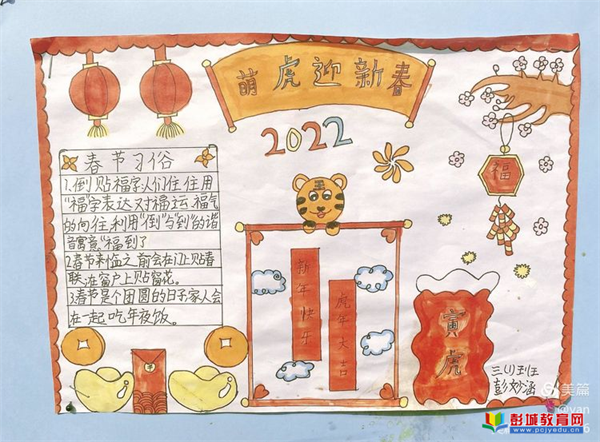 萌虎迎新春
2022
春节习俗
1.倒贴福字人们往往用
"福"字表达对福运、福气
的向往利用"倒"与"到"的谐
音寓意"福到了
2.春节来临之前会在门上贴春
联,在窗户上贴窗花。
3.春节是个团圆的日子家人会
在一起吃年夜饭。
福
新年快乐
虎年大吉
寅虎
三(1)班
彭妙涵
美篇
彭城教育网
www.pcjyedu.cn